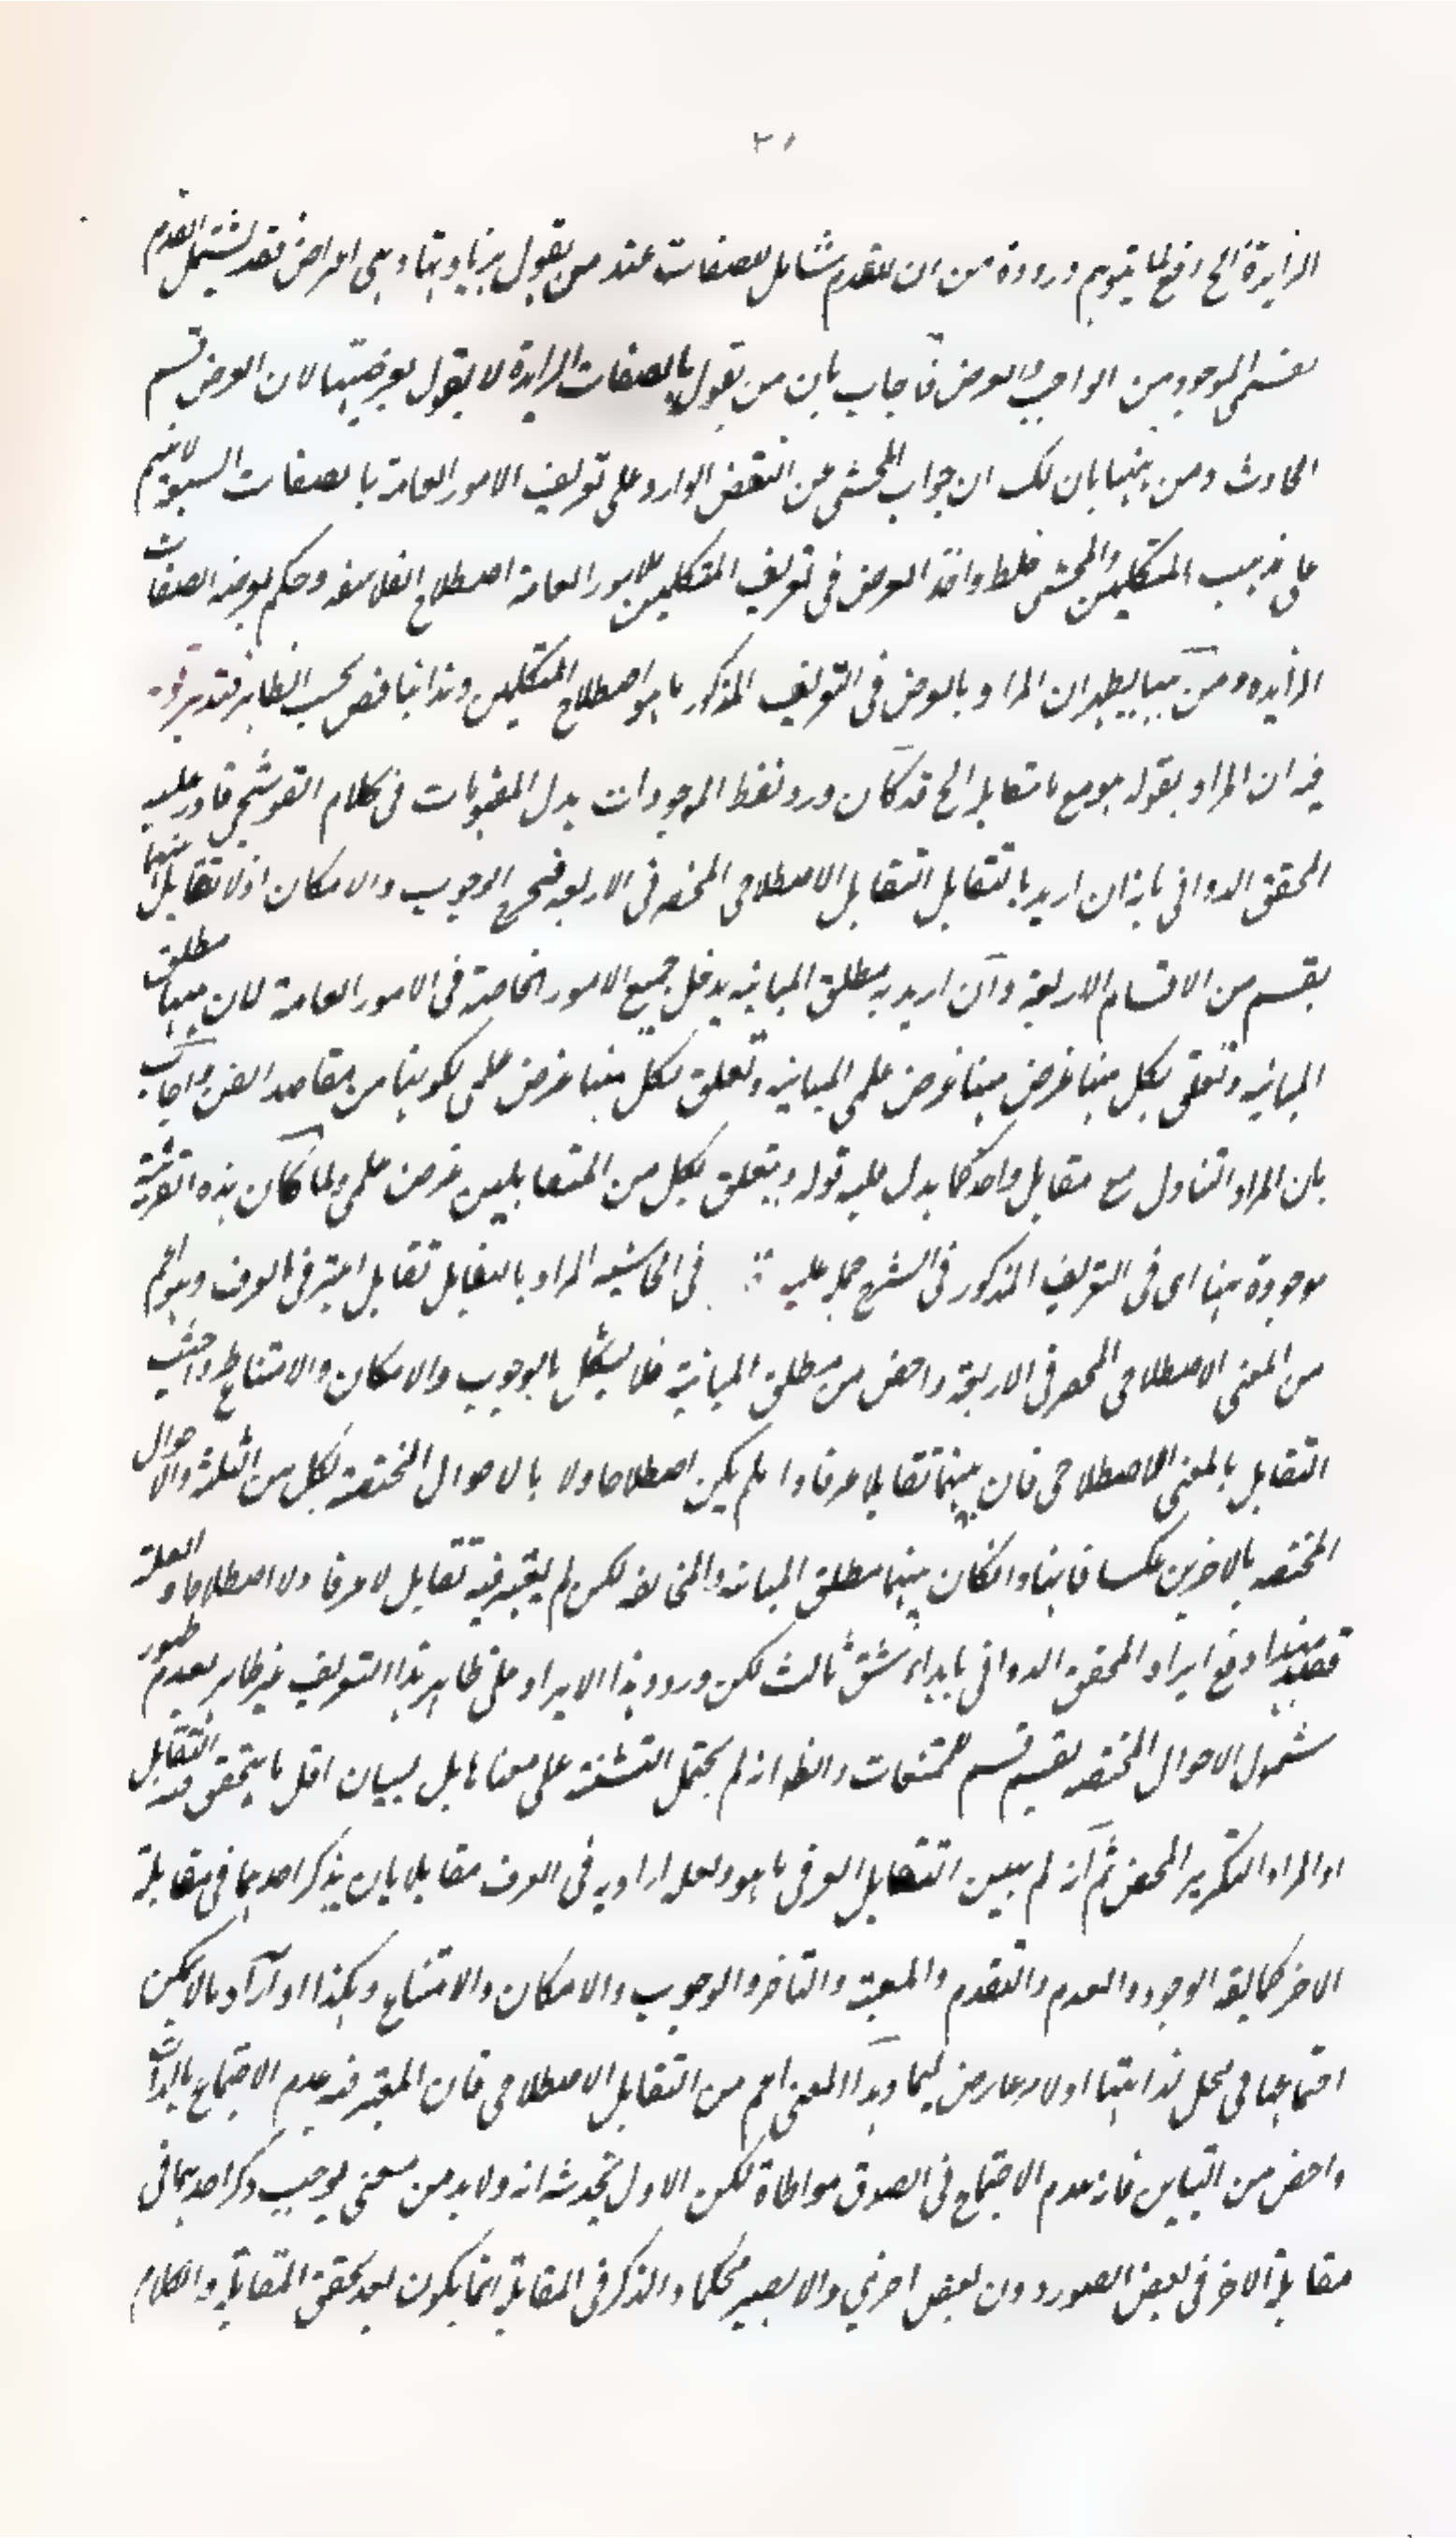 ٣٠
الزايدة الخ دافع لما يتوهم وروده من ان القدم شامل للصفات عند من يقول بزيادتها وهي اعراض فقد يشتمل القدم
لقسمي الموجود من الواجب والعرض فاجاب بان من يقول بالصفات الزايدة لا يقول بعرضيتها لان العرض قسم
الحادث ومن ههنا بان لك ان جواب المحشي عن النقض الوارد على تعريف الامور العامة بالصفات السبعة لا يتم
على مذهب المتكلمين والمحشي خلط واخذ العرض في تعريف المتكلمين للامور العامة اصطلاح الفلاسفه وحكم بعرضية الصفات
الزايده ومن ههنا يظهر ان المراد بالعرض في التعريف المذكور ما هو اصطلاح المتكلمين وهذا يناقض بحسب الظاهر فتدبر قوله
فيه ان المراد بقوله هو مع ما يقابله الخ قد كان ورد لفظ الموجودات بدل المفهومات في كلام القوشجي فاورد عليه
المحقق الدواني بانه ان اريد بالتقابل التقابل الاصطلاحي المنحصر في الاربعة فيخرج الوجوب والامكان اذ لا تقابل بينهما
بقسم من الاقسام الاربعة وان اريد به مطلق المباينه يدخل جميع الامور الخاصة في الامور العامة لان بينها مطلق
المباينه وتعلق بكل منها غرض علمي المباينه وتعلق بكل منها غرض علمي لكونها من مقاصد الفن واجاب
بان المراد التناول مع مقابل واحد كما يدل عليه قوله ويتعلق بكل من المتقابلين غرض علمي ولما كان هذه القرينة
موجودة ههنا اى في التعريف المذكور في الشرح حمل عليه في الحاشيه المراد بالتقابل تقابل اعتبر في العرف وهو اعم
من المعنى الاصطلاحي المنحصر في الاربعة واخص من مطلق المباينة فلا يشكل بالوجوب والامكان والامتناع
التقابل بالمعنى الاصطلاحي فان بينهما تقابلا عرفا وان لم يكن اصطلاحا ولا بالاحوال المختصة بكل من الثلثة والاحوال
المختصه بالاخرين عكسا فانها وانكان بينهما مطلق المباينة والمخالفه لكن لم يعتبر فيه تقابل لا عرفا ولا اصطلاحا والعلة
قصد بهذا دفع ايراد المحقق الدواني بابداء شق ثالث لكن ورود هذا الايراد على ظاهر هذا التعريف غير ظاهر لعدم ظهور
شمول الاحوال المختصه بقسم قسم للمتقابلات والظ انه لم يحتمل على معناها بل لبيان اقل ما يتحقق فيه التقابل
او المراد التكرير المحض ثم انه لم يبين التقابل العرفي ما هو ولعله اراد به في العرف مقابلا بان يذكر احدهما في مقابلة
الاخر كما يقال الوجود والعدم والتقدم والمعية والتاخر والوجوب والامكان والامتناع وهكذا او اراد ما لا يمكن
اجتماعهما في محل لذاتيهما اولا ولعارض لهما وهذا المعنى اعم من التقابل الاصطلاحي فان المعتبر فيه عدم الاجتماع بالذات
واخص من التباين فانه عدم الاجتماع في الصدق مواطاة لكن الاول يخدشه انه ولا بد من معنى يوجب ذكر احدهما في
مقابلة الاخر في بعض الصور دون بعض اخرى والا يصير تحكما والذكر في المقابلة انما يكون بعد تحقق المقابلة والكلام